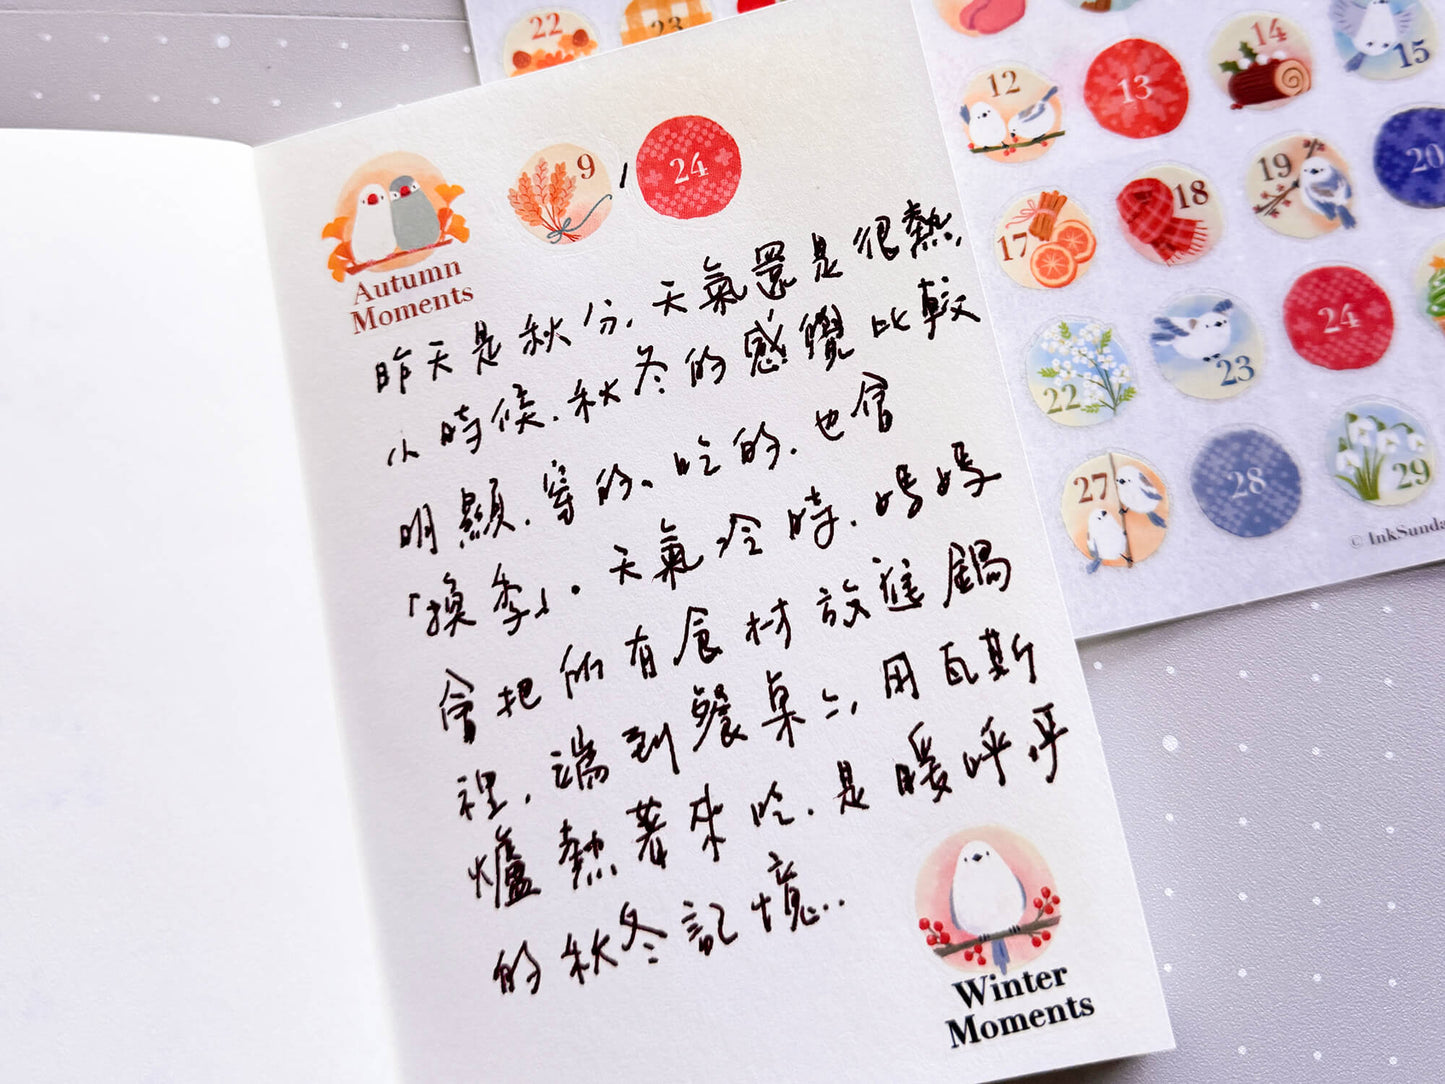 22
23
Autumn
Moments
9 / 24
昨天是秋分,天氣還是很熱,
小時候,秋冬的感覺比較
明顯,穿的、吃的,也會
「換季」。天氣冷時,媽媽
會把所有食材放進鍋
裡,端到餐桌上,用瓦斯
爐熱著來吃,是暖呼呼
的秋冬記憶..
Winter
Moments
12
13
14
15
17
18
19
20
22
23
24
27
28
29
© InkSunda